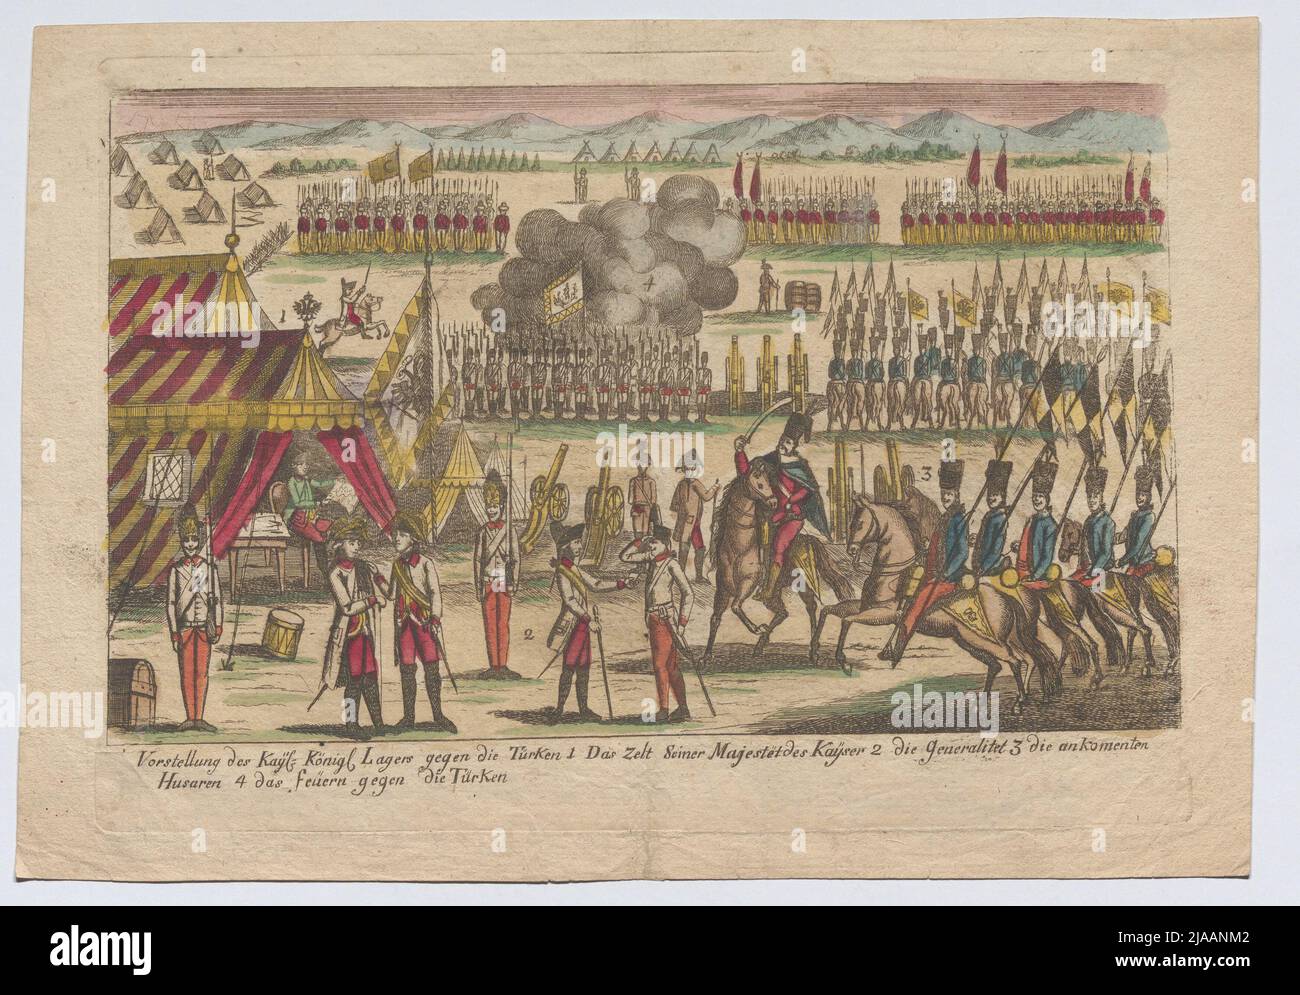 1
4
3
2
Vorstellung des Kaÿſ: Königl Lagers gegen die Türken 1 Das Zelt Seiner Majestët des Kaÿser 2 die generalitet 3 die ankomenten
Husaren 4 das feüern gegen die Türken
alamy
Image ID: 2JAANM2
www.alamy.com